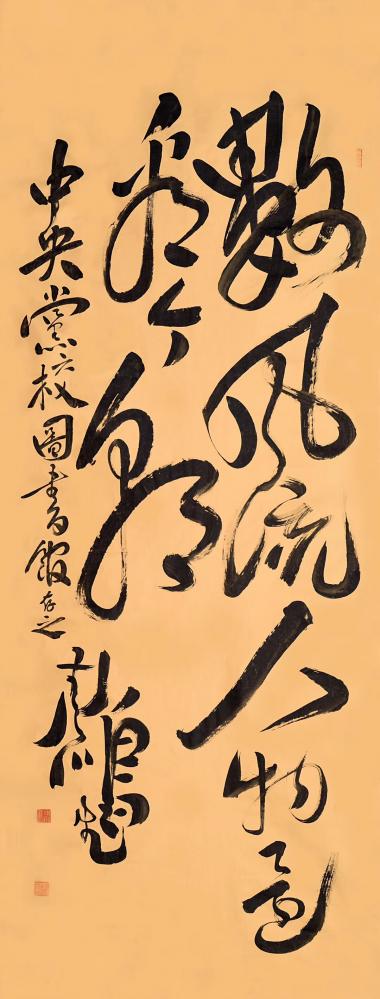 數風流人物還
看今朝
中央黨校圖書館存之